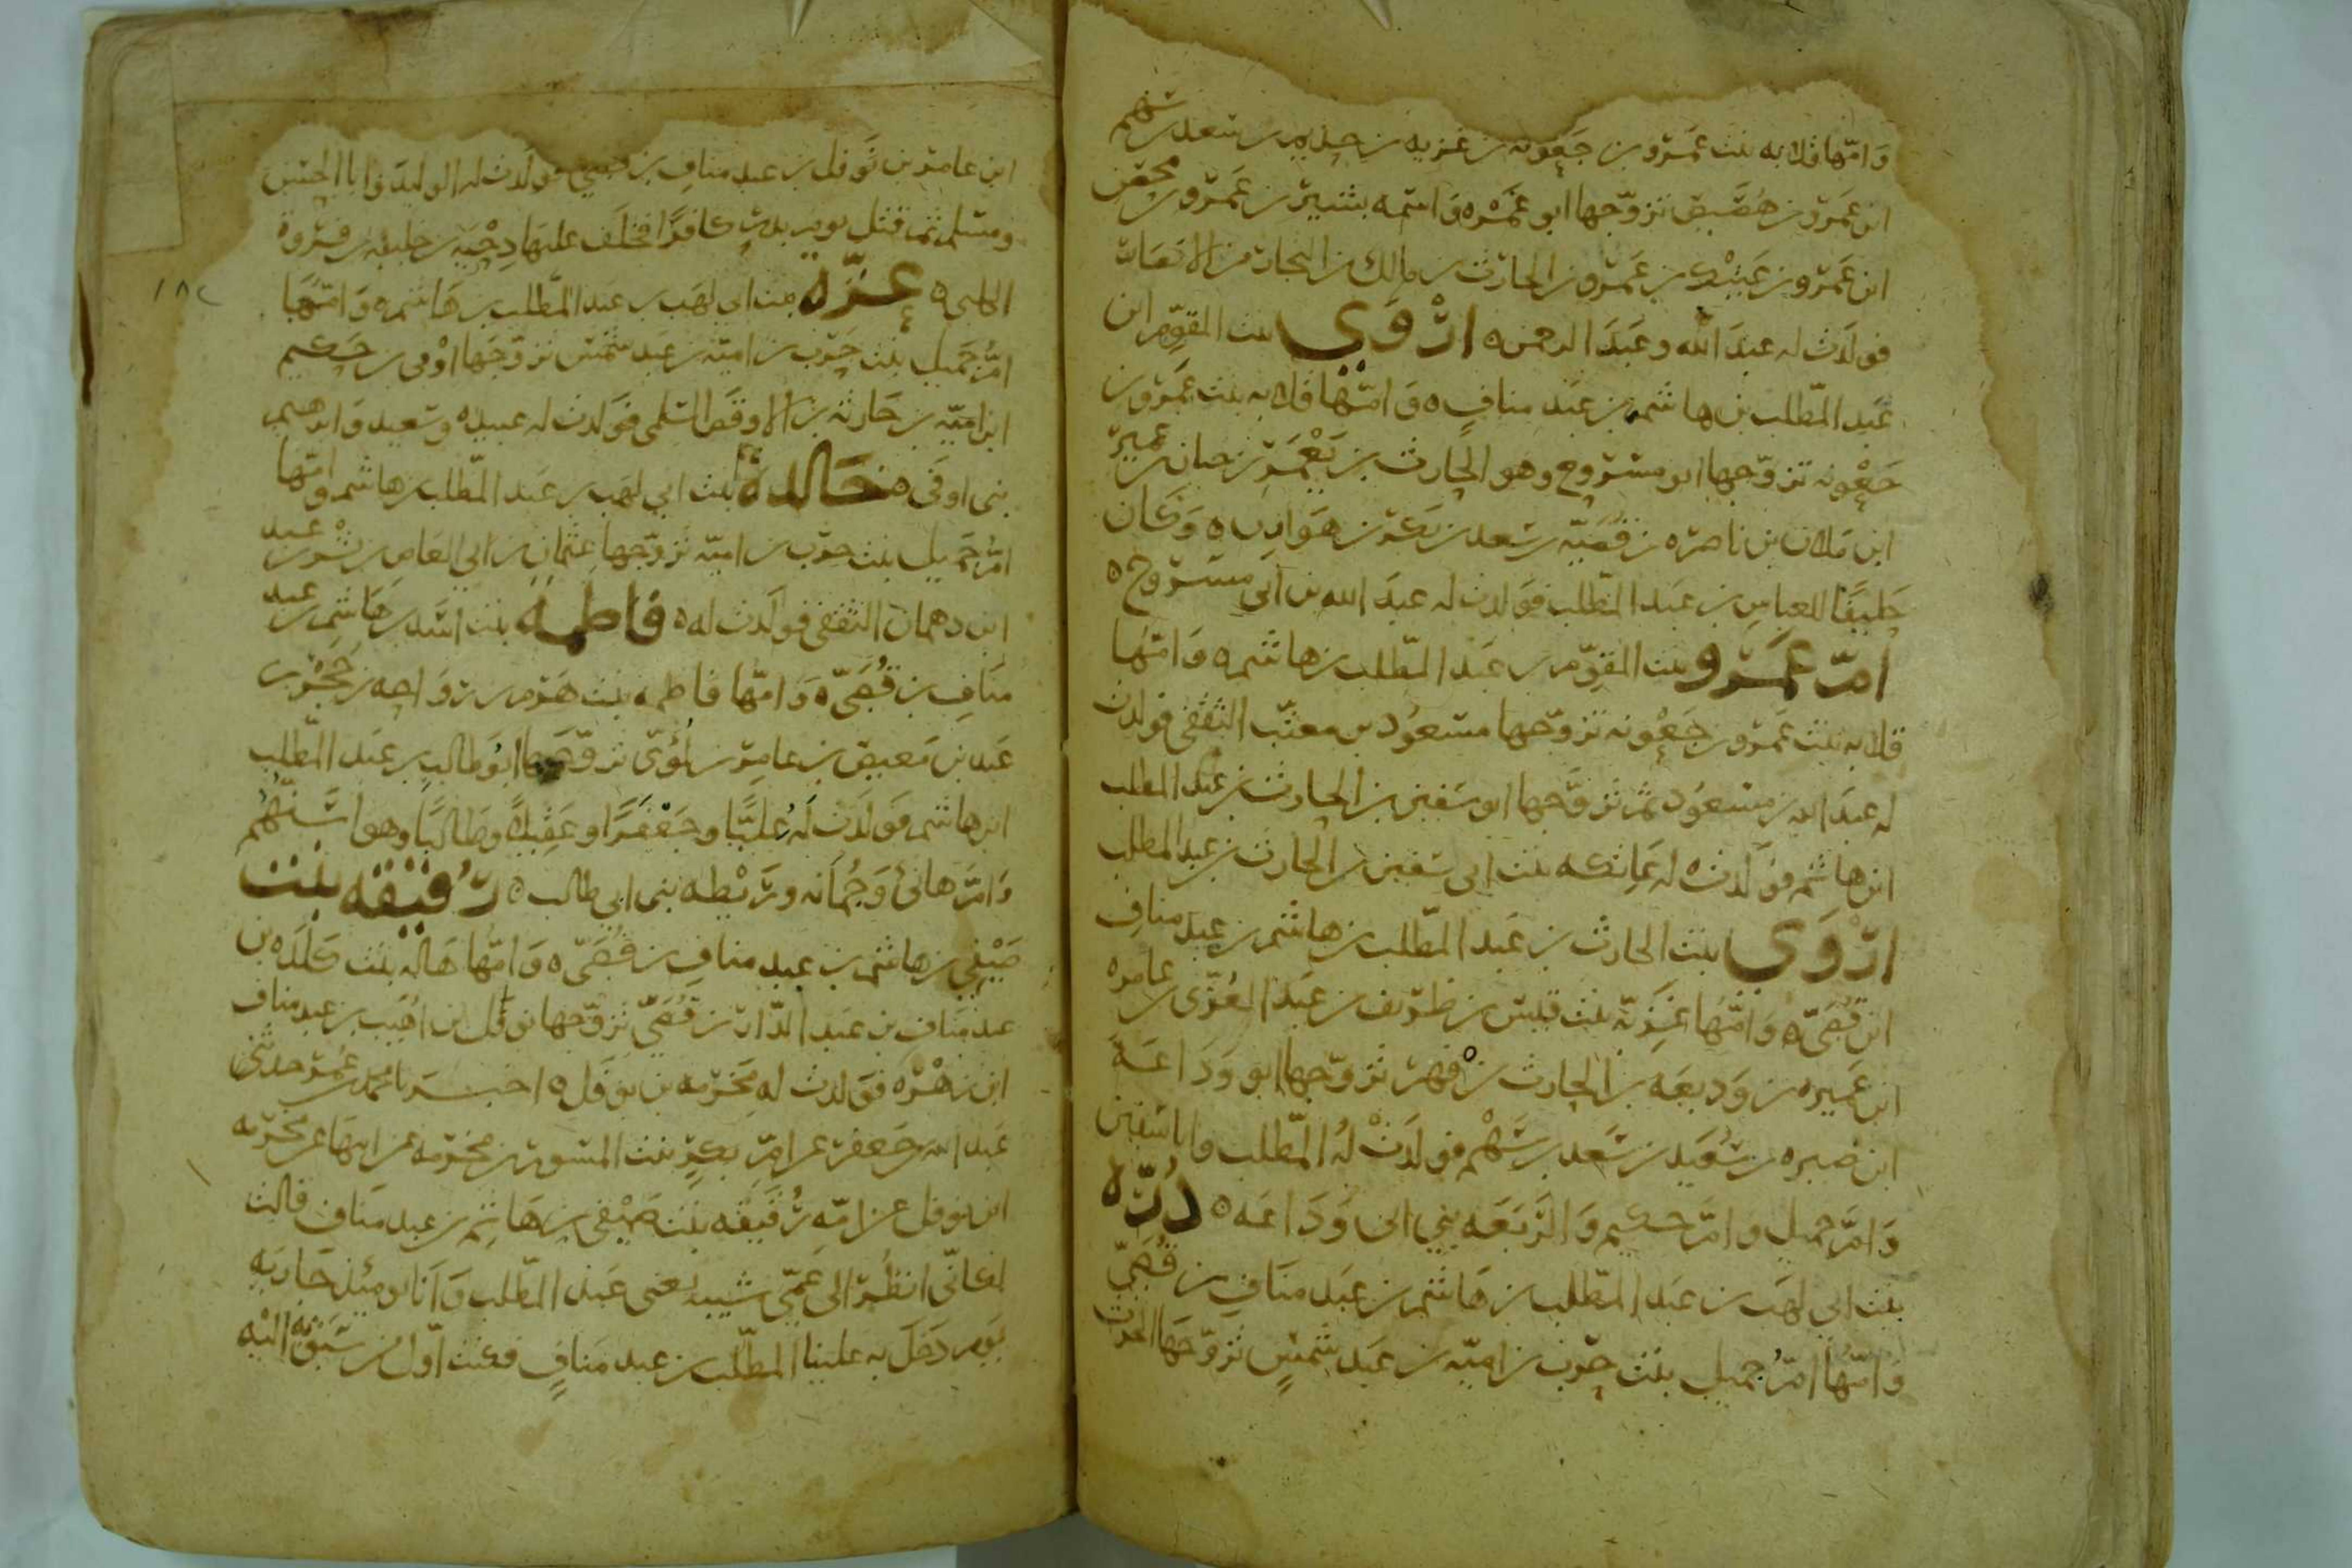 وامها قلابه بنت عمرو بن جعونه بن غزيه بن حذيم بن سعد بن سهم
ابن عمرو بن هصيص تزوجها ابو عمره واسمه بشير بن عمرو بن محصن
ابن عمرو بن عتيك بن عمرو بن الحارث بن مالك بن النجار من الانصار
فولدت له عبد الله وعبد الرحمن ه اروى بنت المقوم ابن
عبد المطلب بن هاشم بن عبد مناف ه وامها قلابه بنت عمرو بن
جعونه تزوجها ابو مسروح وهو الحارث بن يعمر بن حبان بن عميره
ابن ملان بن ناصره بن قصيه بن سعد بن بكر بن هوازن ه وكان
حليفا للعباس بن عبد المطلب فولدت له عبد الله بن ابي مسروح ه
ام عمرو بنت المقوم بن عبد المطلب بن هاشم ه وامها
قلابه بنت عمرو بن جعونه تزوجها مسعود بن معتب الثقفي فولدت
له عبد الله بن مسعود ثم تزوجها ابو سفين بن الحارث بن عبد المطلب
ابن هاشم فولدت ه له عاتكه بنت ابي سفين بن الحارث بن عبد المطلب
اروى بنت الحارث بن عبد المطلب بن هاشم بن عبد مناف
ابن قصي ه وامها غزيه بنت قيس بن طريف بن عبد العزى بن عامره
ابن عميره بن وديعه بن الحارث بن فهر تزوجها ابو وداعه
ابن صبره بن سعيد بن سعد بن سهم فولدت له المطلب وابا سفين
وام جميل وام حكيم والربعه بني ابي وداعه ه دره
بنت ابي لهب بن عبد المطلب بن هاشم بن عبد مناف بن قصي
وامها ام جميل بنت حرب بن اميه بن عبد شمس تزوجها الحرث
ابن عامر بن نوفل بن عبد مناف بن قصي فولدت له الوليد وابا الحسن
ومسلم ثم قتل يوم بدر كافرا فخلف عليها دحيه بن خليفه بن فروة
الكلبي ه عزة بنت ابي لهب بن عبد المطلب بن هاشم ه وامها
ام جميل بنت حرب بن اميه بن عبد شمس تزوجها اوفى بن حكيم
ابن اميه بن حارثه بن الاوقص السلمي فولدت له عبيده وسعيد وابرهيم
بني اوفى ه خالدة بنت ابي لهب بن عبد المطلب بن هاشم وامها
ام جميل بنت حرب بن اميه تزوجها عثمان بن ابي العاص بن بشر بن عبد
ابن دهمان الثقفي فولدت له ه فاطمه بنت اسد بن هاشم بن عبد
مناف بن قصي ه وامها فاطمه بنت هرم بن رواحه بن حجر بن
عبد بن معيص بن عامر بن لؤي تزوجها ابو طالب بن عبد المطلب
ابن هاشم فولدت له عليا وجعفرا وعقيلا وطالبا وهو اسنهم
وام هانئ وجمانه وريطه بني ابي طالب ه رقيقه بنت
صيفي بن هاشم بن عبد مناف بن قصي ه وامها هاله بنت كلده بن
عبد مناف بن عبد الدار بن قصي تزوجها نوفل بن اهيب بن عبد مناف
ابن زهره فولدت له مخرمه بن نوفل ه اخبرنا محمد بن عمر حدثني
عبد الله بن جعفر عن ام بكر بنت المسور بن مخرمه عن ابيها عن مخرمه
ابن نوفل عن امه رقيقه بنت صيفي بن هاشم بن عبد مناف قالت
لكاني انظر الى عمي شيبه تعني عبد المطلب وانا يومئذ جاريه
يوم دخل به علينا المطلب بن عبد مناف فكنت اول من سبق اليه